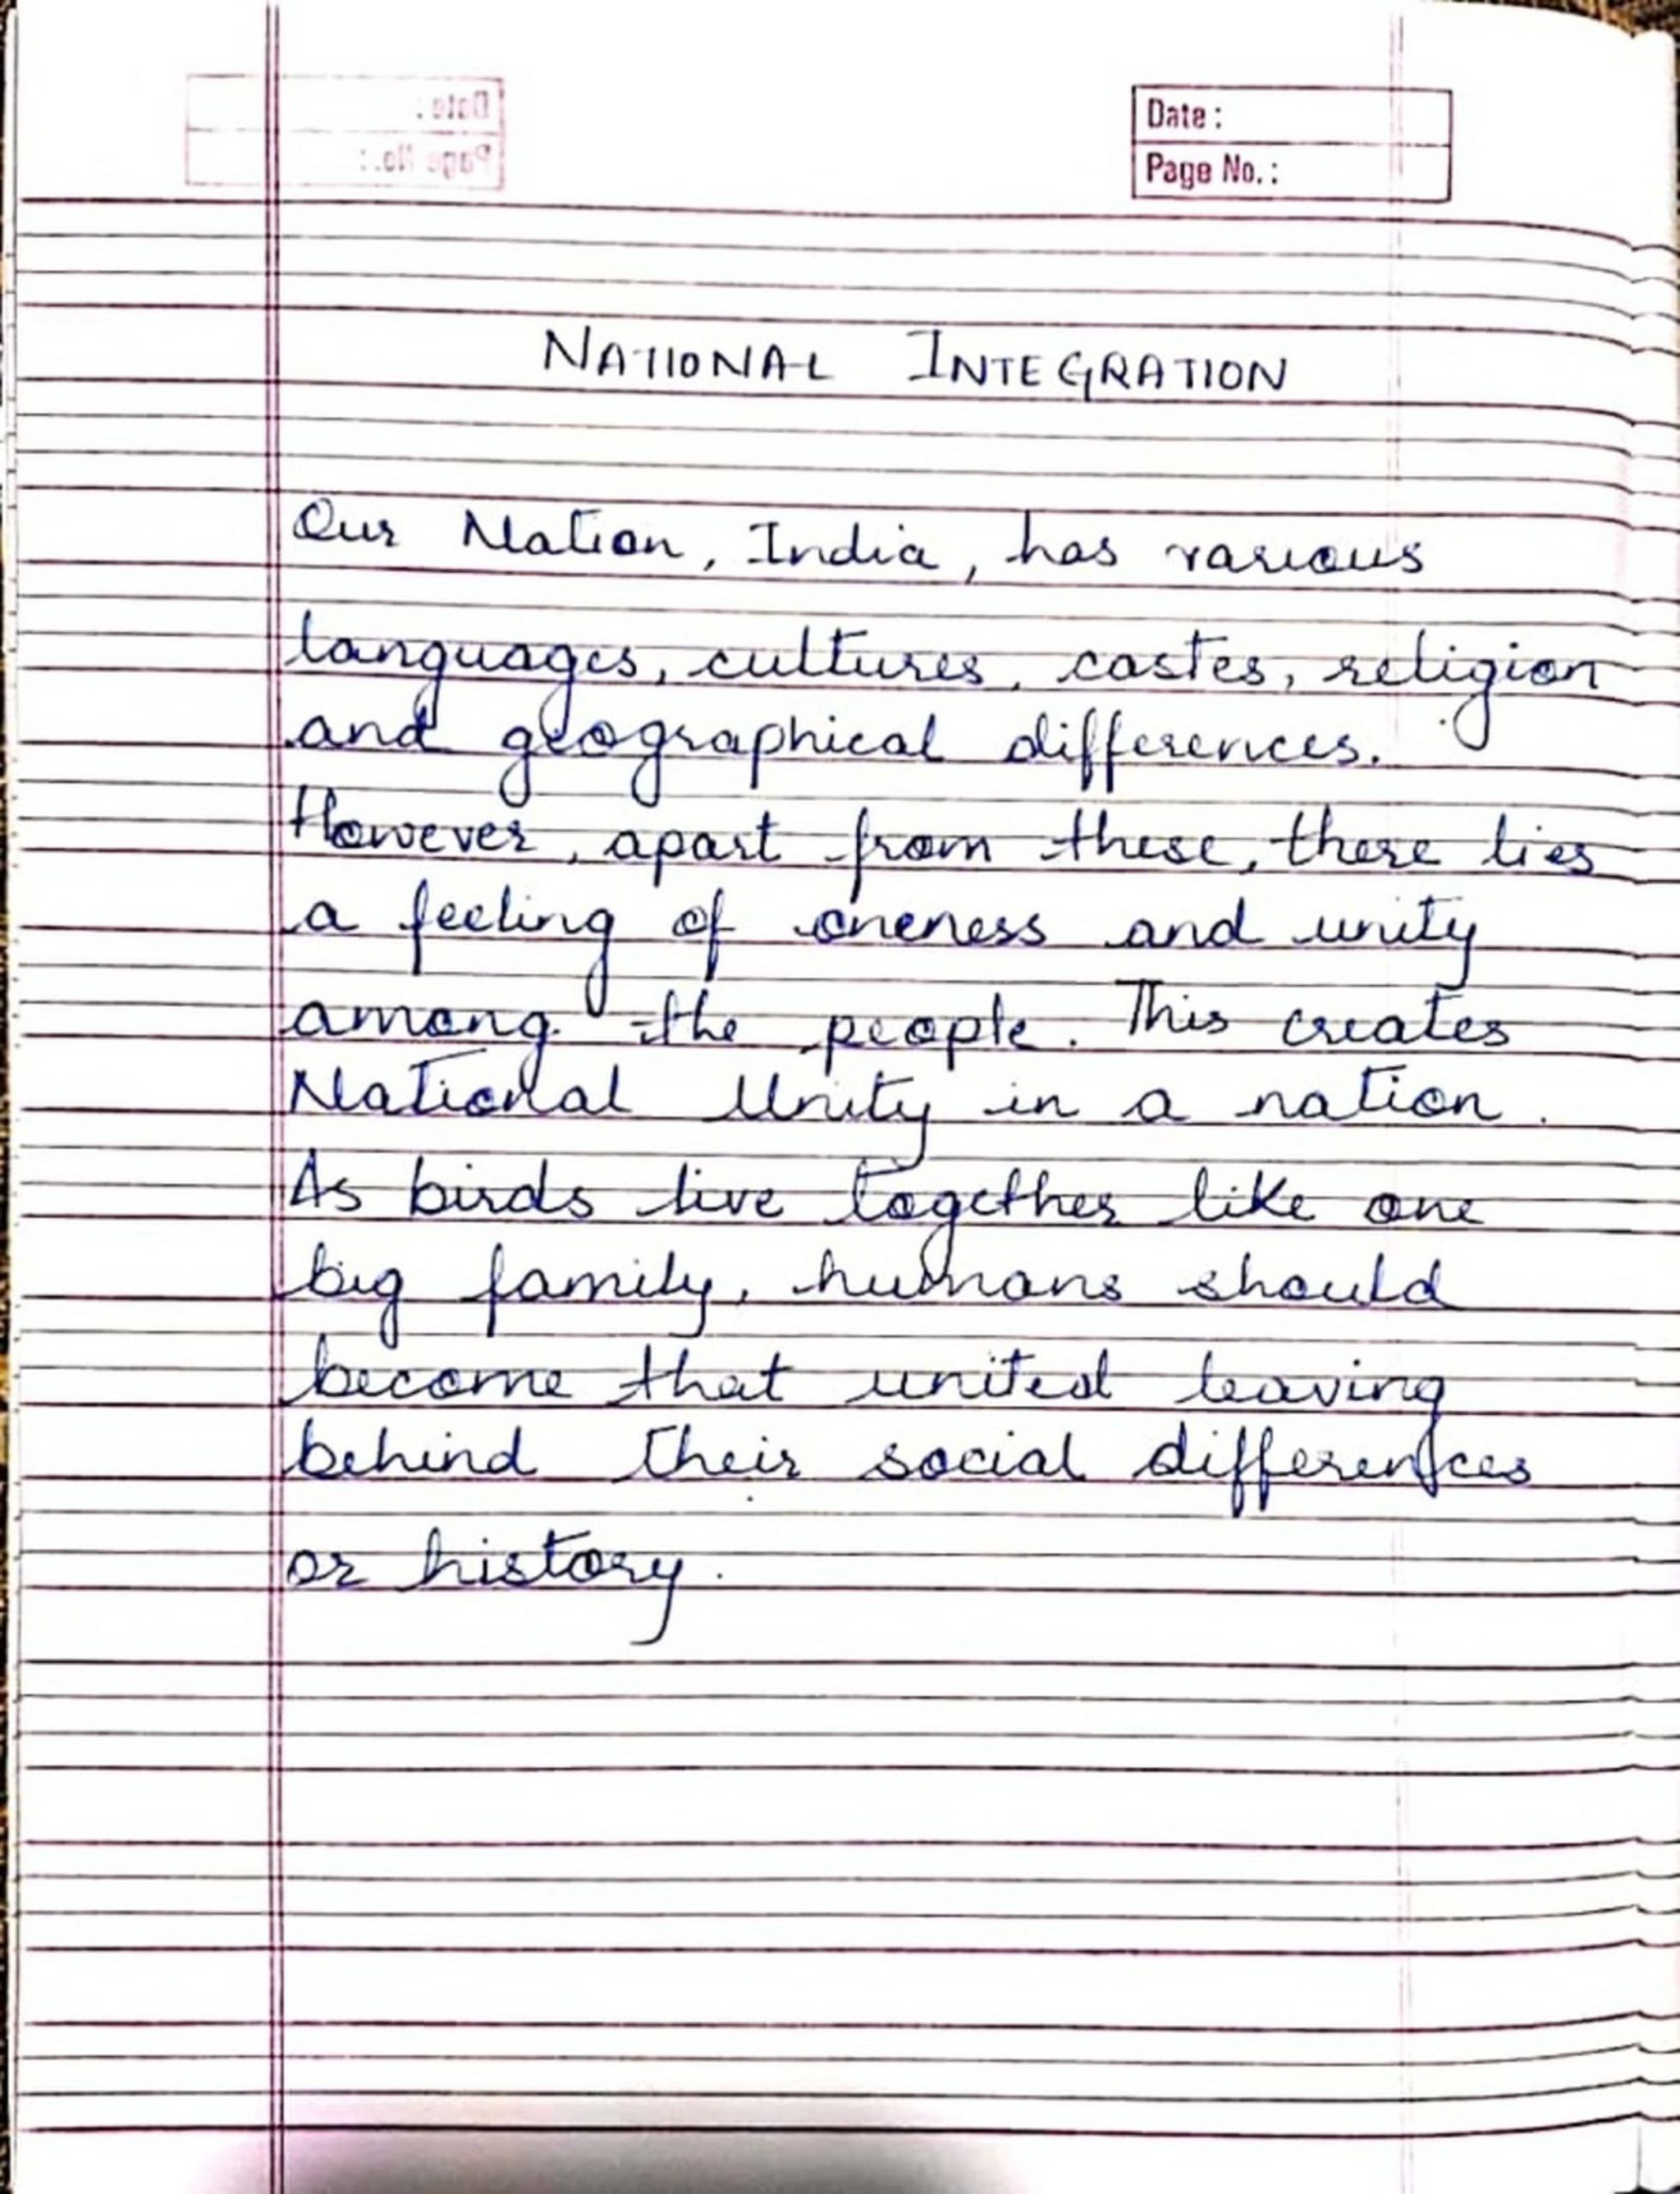 Date :
Page No. :
NATIONAL INTEGRATION
Our Nation, India, has various
languages, cultures, castes, religion
and geographical differences.
However, apart from these, there lies
a feeling of oneness and unity
among the people. This creates
National Unity in a nation.
As birds live together like one
big family, humans should
become that united leaving
behind their social differences
or history.